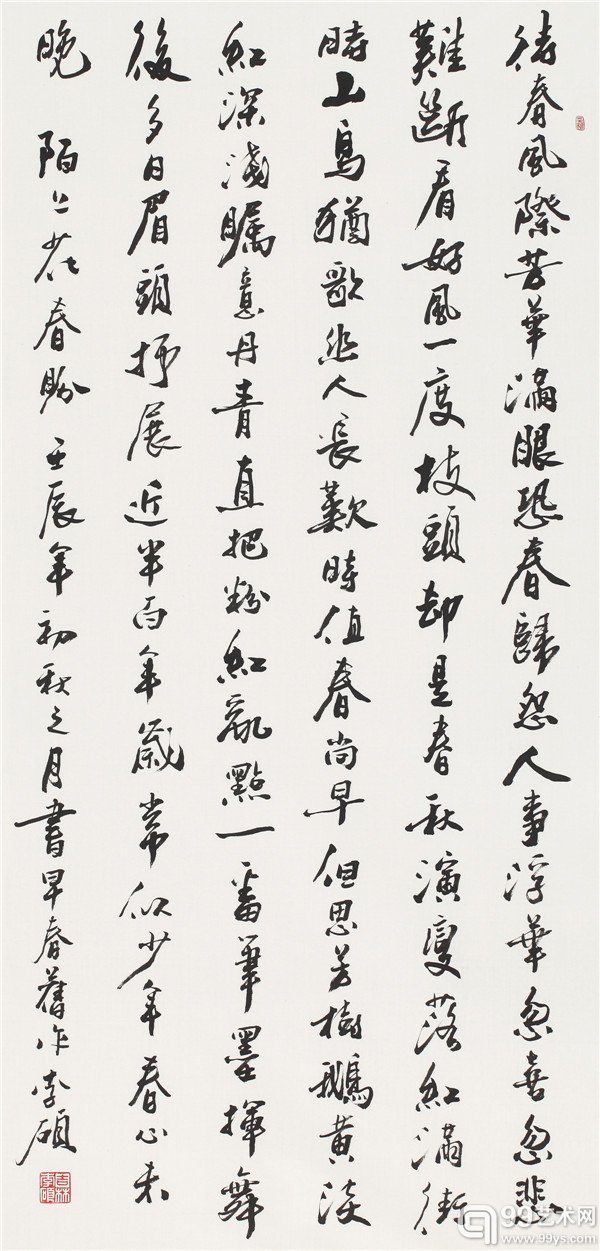 待春風際芳華滿眼恐春歸怨人事浮華忽喜忽悲
難斷看好風一度枝頭却是春秋演變落紅滿街
時山鳥猶歌悲人長歎時值春尚早但思芳樹鵝黃淡
紅深淺矚意丹青直把粉紅亂點一番筆墨揮舞
後多日眉頭抒展近半百年歲常似少年春心未
晚 陌上花春盼 壬辰年初秋之月書早春舊作李碩
吉林
李碩
99艺术网
www.99ys.com